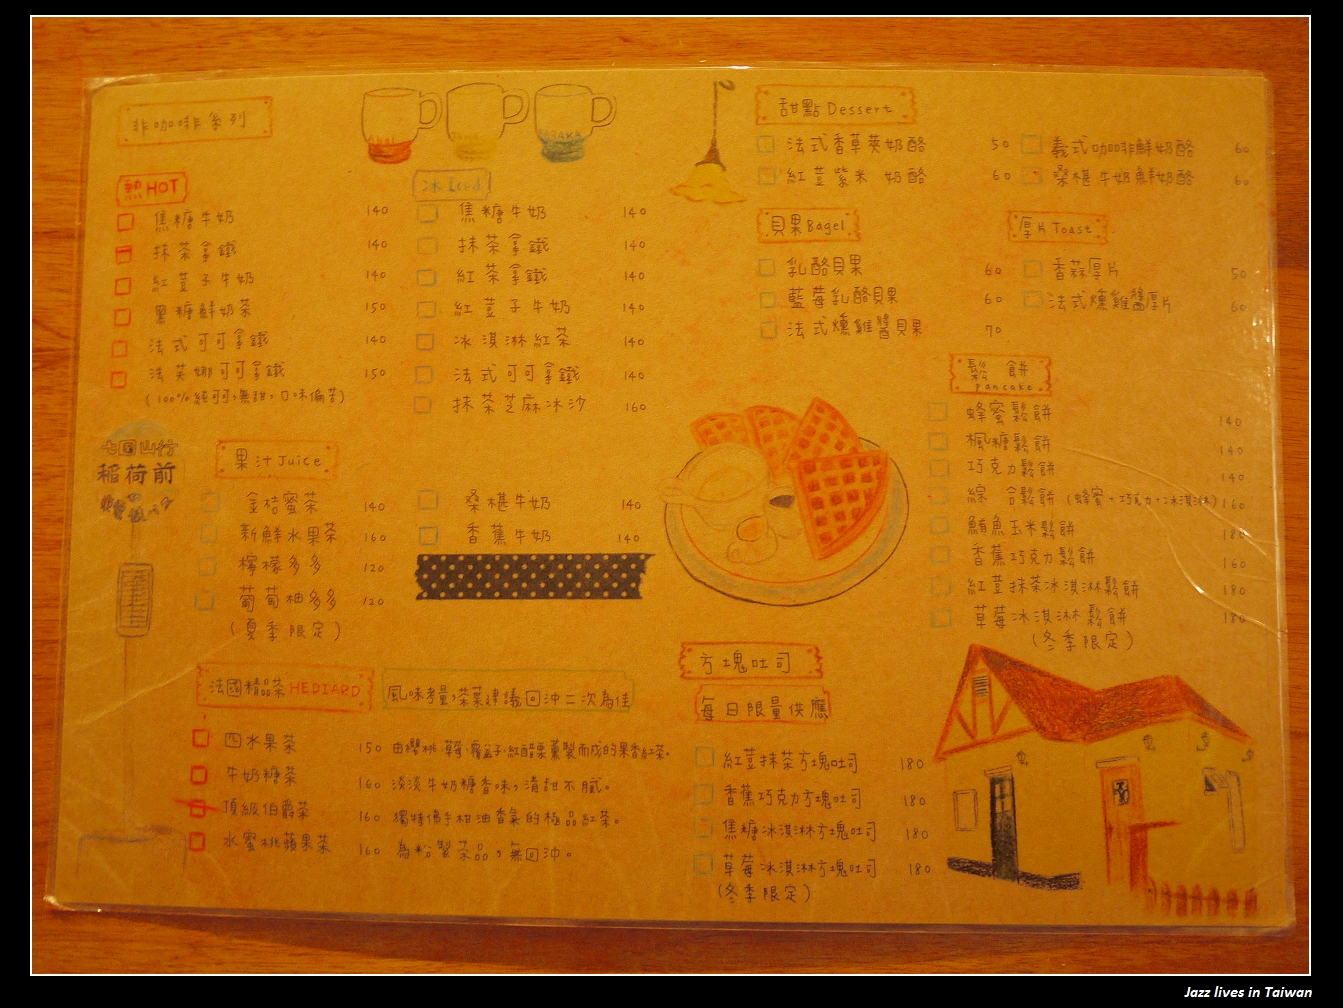 非咖啡系列
熱 HOT
焦糖牛奶 140
抹茶拿鐵 140
紅荳子牛奶 140
黑糖鮮奶茶 150
法式可可拿鐵 140
法芙娜可可拿鐵 150
(100%純可可,無甜,口味偏苦)
冰 Iced
焦糖牛奶 140
抹茶拿鐵 140
紅茶拿鐵 140
紅荳子牛奶 140
冰淇淋紅茶 140
法式可可拿鐵 140
抹茶芝麻冰沙 160
七国山行
稲荷前
果汁Juice
金桔蜜茶 140
新鮮水果茶 160
檸檬多多 120
葡萄柚多多 120
(夏季限定)
桑椹牛奶 140
香蕉牛奶 140
法國精品茶 HEDIARD
風味考量,茶葉建議回沖二次為佳
四水果茶 150 由櫻桃、草莓、覆盆子、紅醋栗薰製而成的果香紅茶。
牛奶糖茶 160 淡淡牛奶糖香味,清甜不膩。
頂級伯爵茶 160 獨特佛手柑油香氣的極品紅茶。
水蜜桃蘋果茶 160 為粉製茶品,無回沖。
甜點 Dessert
法式香草莢奶酪 50
紅荳紫米奶酪 60
義式咖啡鮮奶酪 60
桑椹牛奶鮮奶酪 60
貝果Bagel
乳酪貝果 60
藍莓乳酪貝果 60
法式燻雞醬貝果 70
厚片Toast
香蒜厚片 50
法式燻雞醬厚片 60
鬆餅
pancake
蜂蜜鬆餅 140
楓糖鬆餅 140
巧克力鬆餅 140
綜合鬆餅 (蜂蜜+巧克力+冰淇淋) 160
鮪魚玉米鬆餅 180
香蕉巧克力鬆餅 160
紅荳抹茶冰淇淋鬆餅 180
草莓冰淇淋鬆餅 180
(冬季限定)
方塊吐司
每日限量供應
紅荳抹茶方塊吐司 180
香蕉巧克力方塊吐司 180
焦糖冰淇淋方塊吐司 180
草莓冰淇淋方塊吐司 180
(冬季限定)
Jazz lives in Taiwan